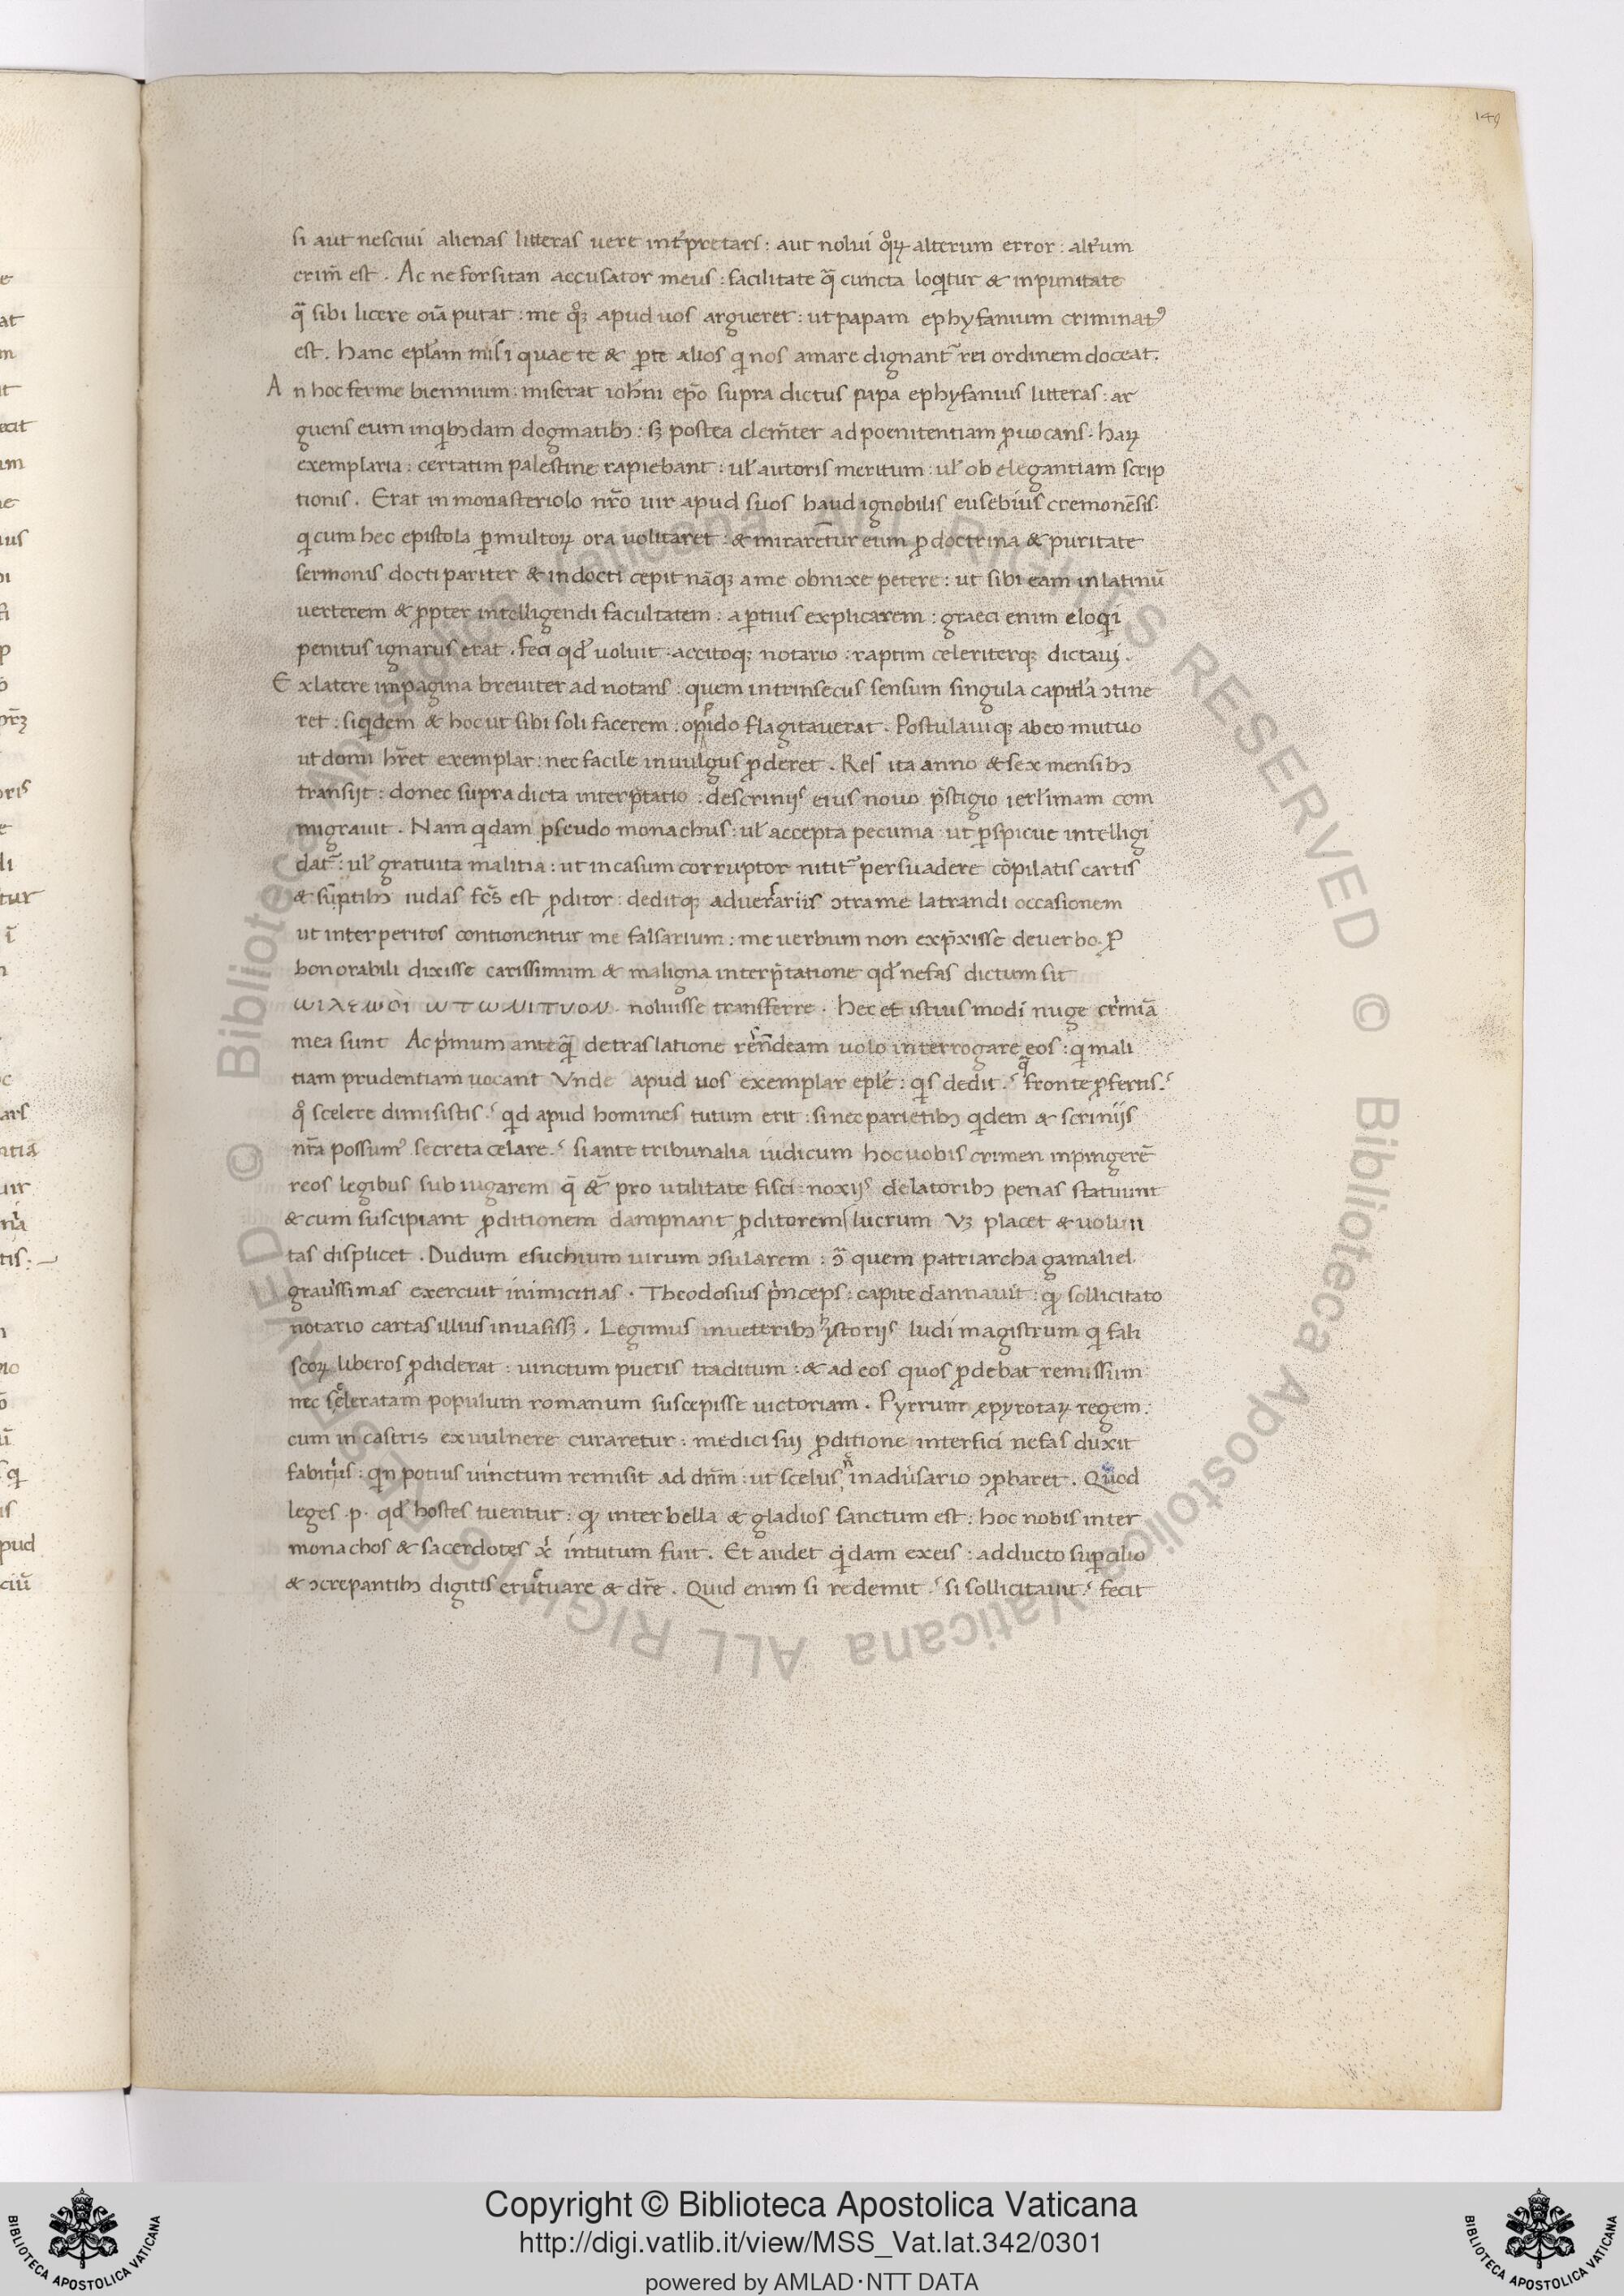 149
si aut nescivi alienas litteras vere int̛pretari : aut nolui qͦꝝ alterum error : alt̛um
crim̄ est . Ac ne forsitan accusator meus : facilitate q̄ cuncta loqͥtur & inpunitate
q̄ sibi licere oīa putat : me qͦꝫ apud vos argueret : ut papam ephyfanium criminatꝰ
est . hanc ep̄lam misi quae te & ꝑ te alios qͥ nos amare dignant᷑ rei ordinem doceat.
An hoc ferme biennium : miserat ioh̄ni ep̄o supra dictus papa ephyfanius litteras : ar
guens eum in qͥbꝫdam dogmatibꝫ : sꝫ postea clem̄ter ad poenitentiam ꝓvocans . haꝝ
exemplaria : certatim palestine rapiebant : ul̄ autoris meritum : ul̄ ob elegantiam scrip
tionis . Erat in monasteriolo nr̄o vir apud suos haud ignobilis eusebius cremonēsis .
qͥ cum hec epistola ꝑ multoꝝ ora volitaret : & mirarētur eum ꝓ doctrina & puritate
sermonis docti pariter & indocti cepit nāqꝫ a me obnixe petere : ut sibi eam in latinū
verterem & ꝓpter intelligendi facultatem : aꝑtius explicarem : graeci enim eloqͥi
penitus ignarus erat . feci qd̄ voluit . accitoqꝫ notario : raptim celeriterqꝫ dictavi .
Ex latere in pagina breviter adnotans : quem intrinsecus sensum singula capitl̄a ↄtine
ret : siqͥdem & hoc ut sibi soli facerem : oppido flagitaverat . Postulaviqꝫ ab eo mutuo
ut domi hr̄et exemplar : nec facile in vulgus ꝓderet . Res ita anno & sex mensibꝫ
transijt : donec supra dicta interp̄tatio : de scrinijs eius novo p̄stigio ierl̄imam com
migravit . Nam qͥdam pseudo monachus : ul̄ accepta pecunia : ut ꝑspicue intelligi
dat᷑ : ul̄ gratuita malitia : ut incasum corruptor nitit᷑ persuadere cōpilatis cartis
& sūptibꝫ iudas fc̄s est ꝓditor : deditqꝫ adversariis ↄtra me latrandi occasionem
ut inter peritos contionentur me falsarium : me verbum non exp̄xisse de verbo . ꝓ
honorabili dixisse carissimum & maligna interp̄tatione qd̄ nefas dictum sit
noluisse transferre . hec et istius modi nuge crͥmiā
mea sunt Ac pͥmum anteq̄ de traslatione rn̄deam volo interrogare eos : qͥ mali
tiam prudentiam vocant Unde apud vos exemplar epl̄e : qͥs dedit ? q̄ fronte ꝓfertis ?
qͦ scelere dimisistis ? qͥd apud homines tutum erit : si nec parietibꝫ qͥdem & scrinijs
nr̄a possumꝰ secreta celare ? si ante tribunalia iudicum hoc vobis crimen inpingerē
reos legibus subiugarem q̄ &̄ pro utilitate fisci : noxijs delatoribꝫ penas statuunt
& cum suscipiant ꝓditionem dampnant ꝓditorem / lucrum vꝫ placet & volun
tas displicet . Dudum esuchium virum ↄsularem : ↄ̄ quem patriarcha gamaliel
gravissimas exercuit inimicitias . Theodosius pͥnceps : capite dannavit : qꝫ sollicitato
notario cartas illius invasissꝫ . Legimus in veteribꝫ hystorijs ludi magistrum qͥ fali
scoꝝ liberos ꝓdiderat : vinctum pueris traditum : & ad eos quos ꝓdebat remissum
nec sceleratam populum romanum suscepisse victoriam . Pyrrum epyrotaꝝ regem :
cum in castris ex vulnere curaretur : medici sui ꝓditione interfici nefas duxit
fabitius : qͥn potius vinctum remisit ad dn̄m : ut scelus n̄ in adv̛sario ↄꝓbaret . Quod
leges .p. qd̄ hostes tuentur : qꝫ inter bella & gladios sanctum est : hoc nobis inter
monachos & sacerdotes xͥ intutum fuit . Et audet qͥdam ex eis : adducto suꝑcilio
& ↄcrepantibꝫ digitis eructuare & dr̄e . Quid enim si redemit ? si sollicitavit ? fecit
Copyright © Biblioteca Apostolica Vaticana
http://digi.vatlib.it/view/MSS_Vat.lat.342/0301
powered by AMLAD·NTT DATA